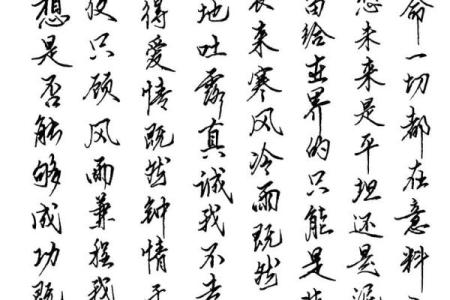 命一切都在意料
想未来是平坦还是泥
留给世界的只能是
来寒风冷雨既然
地吐露真诚我不去
得爱情既然钟情于
便只顾风雨兼程我
想是否能够成功既